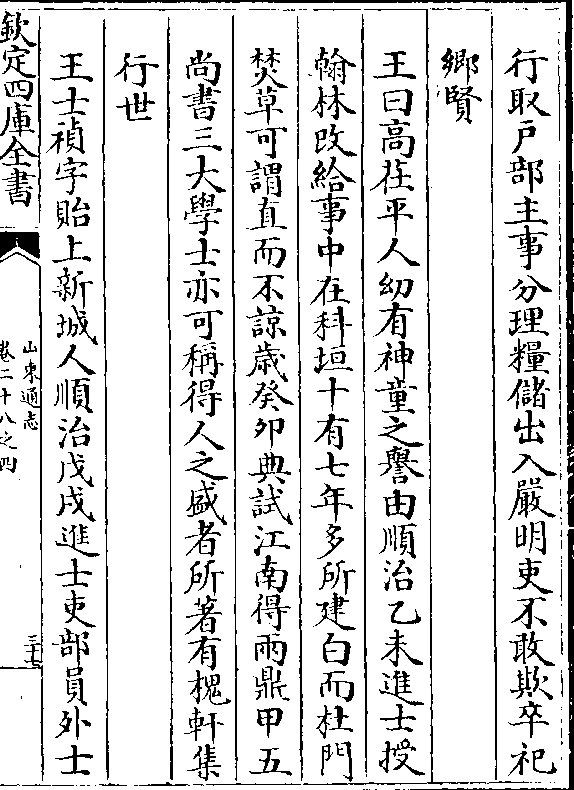 行取户部主事分理糧儲出入嚴明吏不敢欺卒祀
鄉賢
王曰高茌平人幼有神童之譽由順治乙未進士授
翰林改給事中在科垣十有七年多所建白而杜門
焚草可謂直而不諒歳癸卯典試江南得兩鼎甲五
尚書三大學士亦可稱得人之盛者所著有槐軒集
行世
王士禎字貽上新城人順治戊戌進士吏部員外士
欽定四庫全書
山東通志
卷二十八之四
三十七